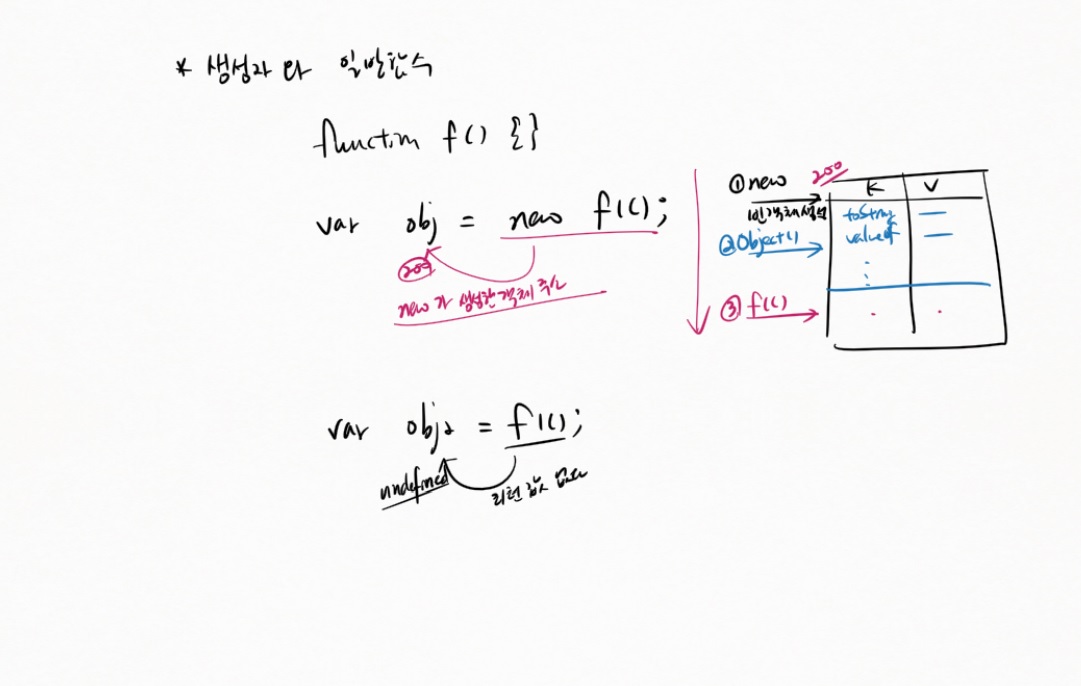 * 생성자 와 일반함수
function f() {}
var obj = new f1();
200
new 가 생성한 객체 주소
① new 200
빈 객체 생성
② Object()
③ f1()
K V
toString —
valueOf —
⋮
var obj2 = f1();
undefined
리턴 값 없다